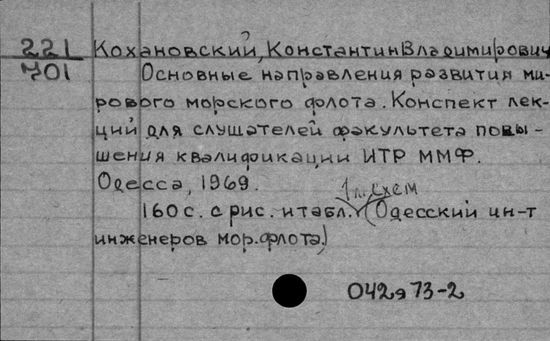 221
701
Кохановский, Константин Владимирович
Основные направления развития ми-
рового морского флота. Конспект лек-
ций для слушателей факультета повы-
шения квалификации ИТР ММФ.
Одесса, 1969.
1 л. схем
160 с. с рис. и табл. (Одесский ин-т
инженеров мор. флота)
042я73-2